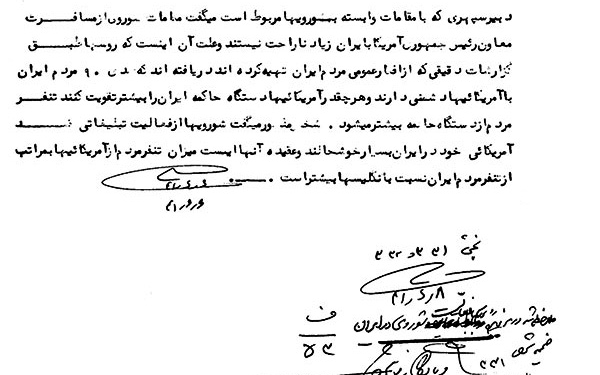 دبیرسپهری که با مقامات وابسته بشورویها مربوط است میگفت مقامات شوروی از مسافرت
معاون رئیس جمهوری آمریکا بایران زیاد ناراحت نیستند وعلت آن اینست که روسها طبق
گزارشات دقیقی که از افکار عمومی مردم ایران تهیه کرده اند دریافته اند که ۹۰ مردم ایران
با آمریکائیها دشمنی دارند و هرچقدر آمریکائیها دستگاه حاکمه ایران را بیشتر تقویت کنند تنفر
مردم از دستگاه حاکمه بیشتر میشود . شخص مذکور میگفت شورویها از فعالیت تبلیغاتی ضد
آمریکائی خود در ایران بسیار خوشحالند وعقیده آنها اینست میزان تنفر مردم از آمریکائیها بمراتب
از تنفر مردم ایران نسبت با نگلیسها بیشتر است .
بخش ۳۳۱ و ۳۳۲
شوروی در ایران
ف
ضمیمه شود ۳۳۱